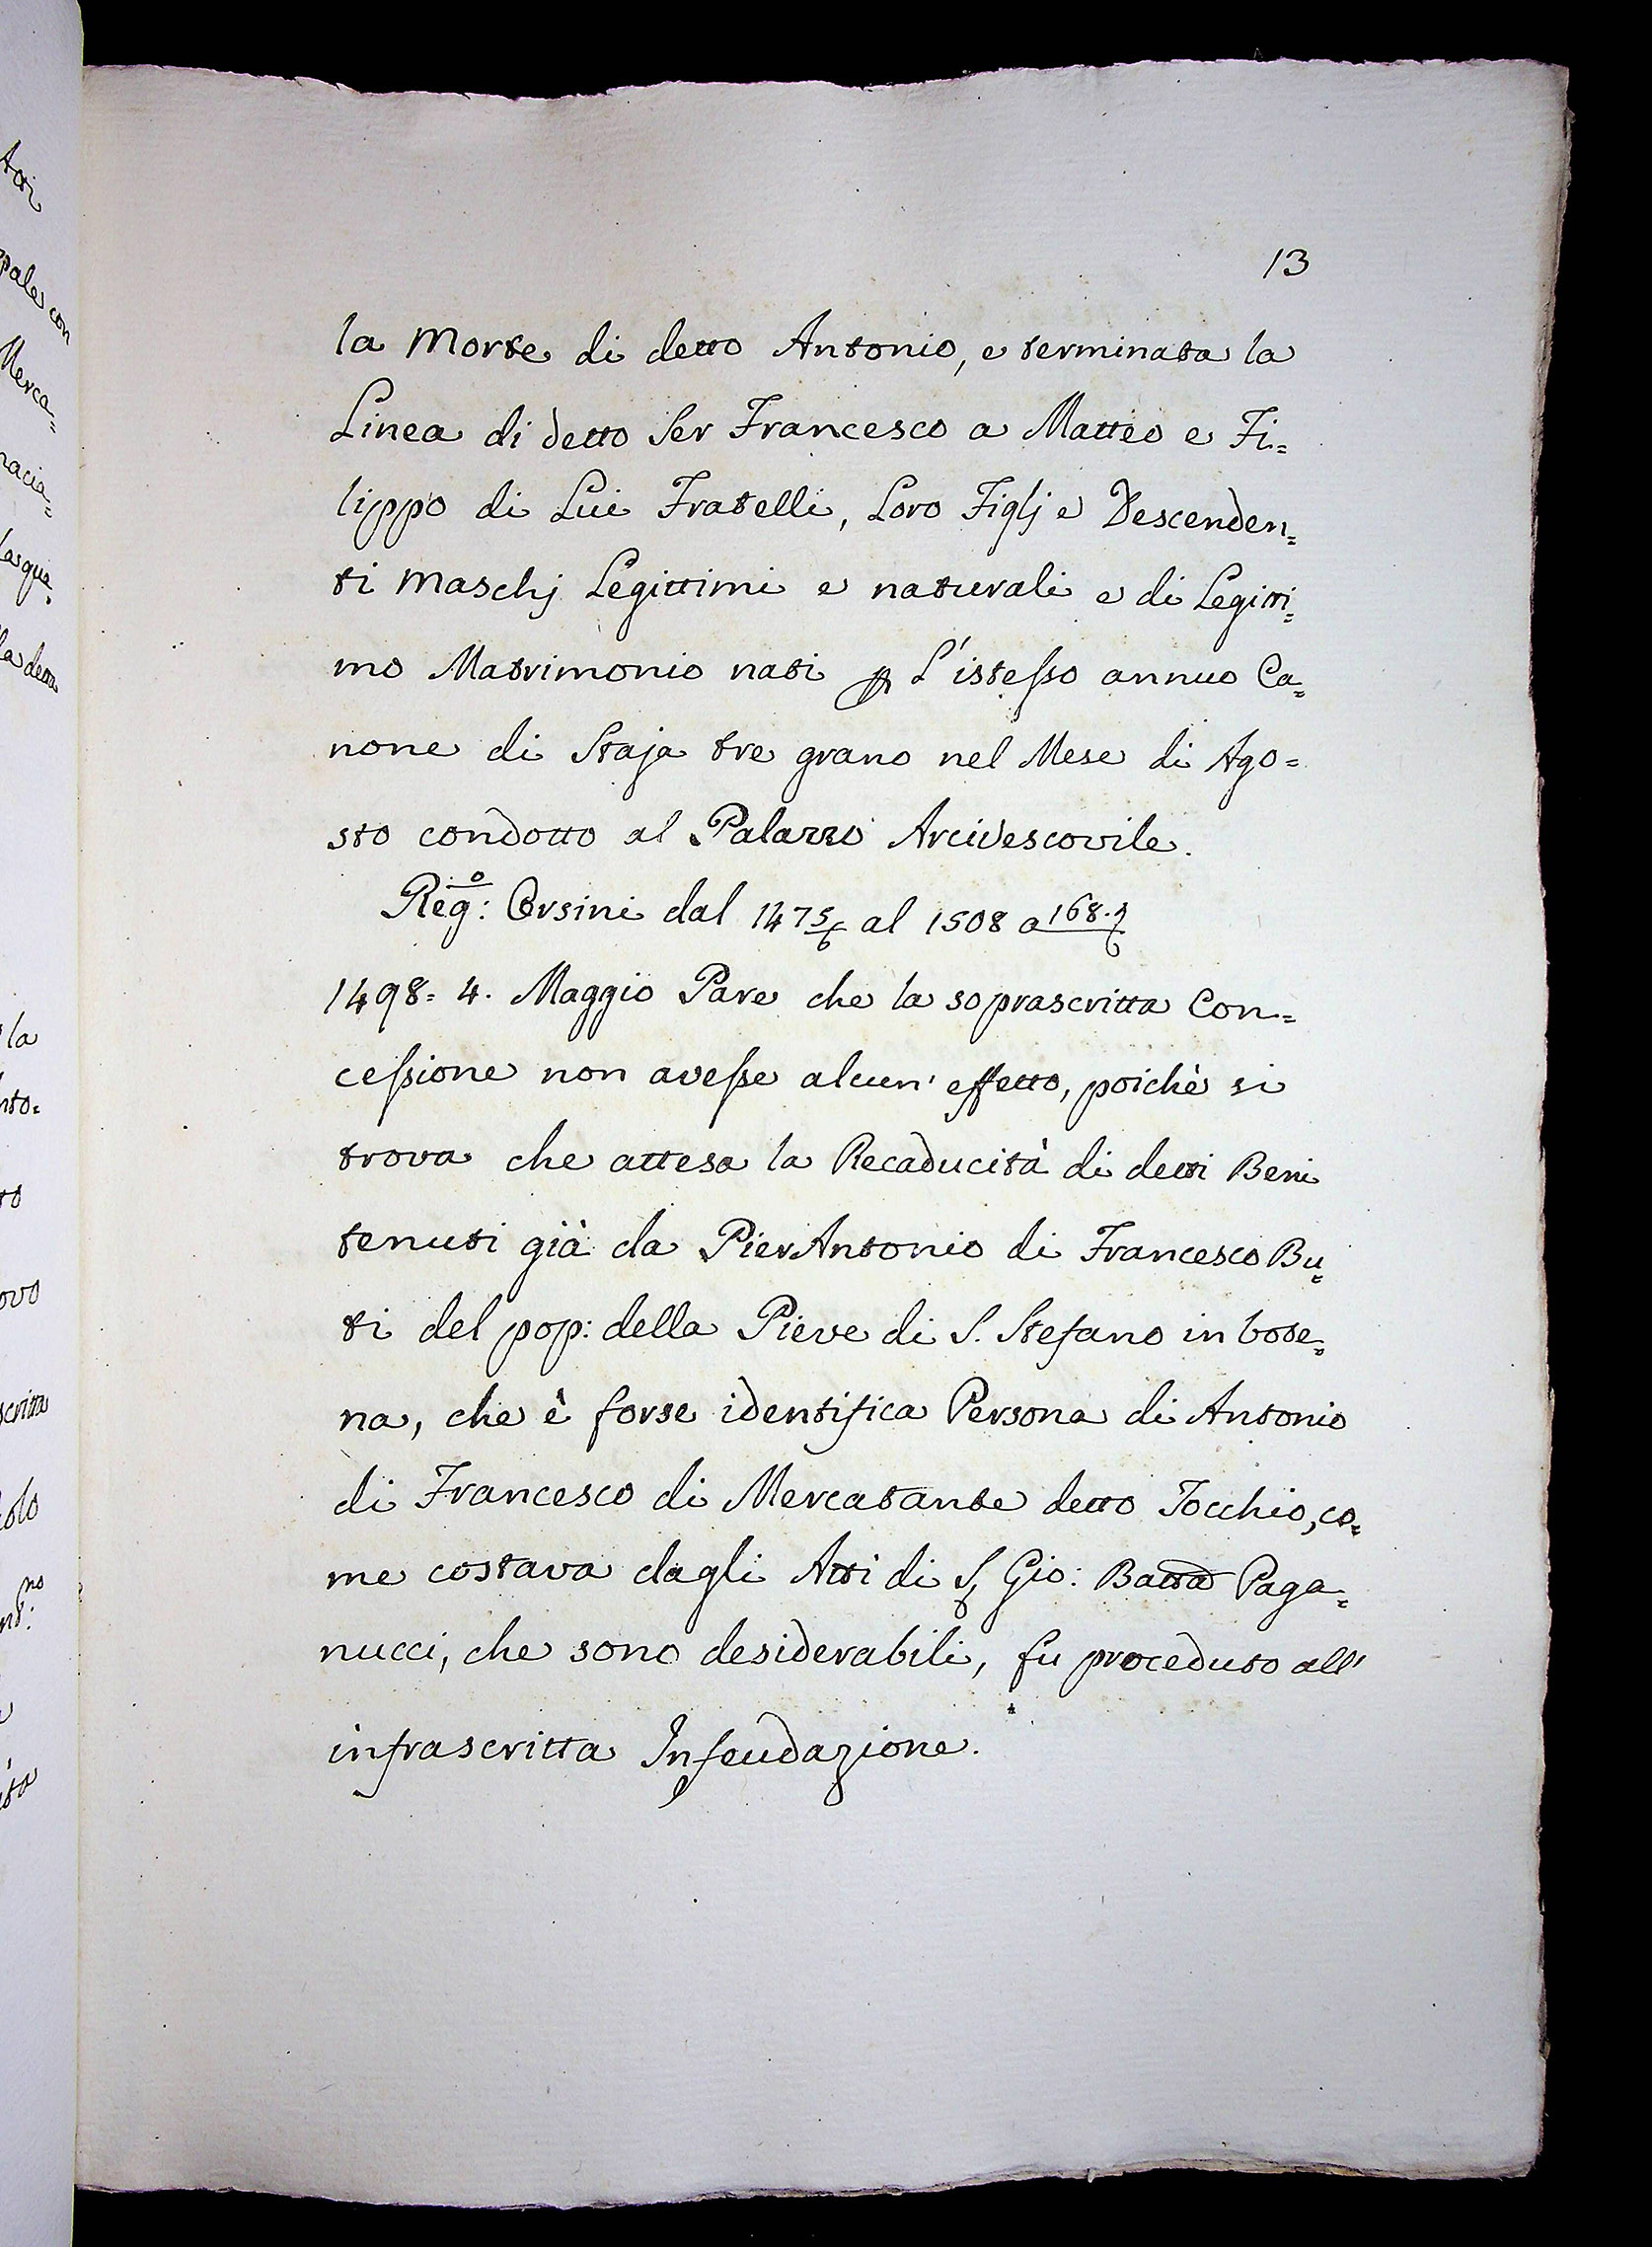 13
la Morte di detto Antonio, e terminata la
Linea di detto Ser Francesco a Matteo e Fi=
lippo di Lui Fratelli, Loro Figlj e Descenden=
ti Maschj Legittimi e naturali e di Legitti=
mo Matrimonio nati p L'istesso annuo Ca=
none di Staja tre grano nel Mese di Ago=
sto condotto al Palazzo Arcivescovile.
Reg:o Orsini dal 1475 al 1508 a 168.
1498= 4. Maggio Pare che la soprascritta Con=
cessione non avesse alcun' effetto, poichè si
trova che attesa la Recaducità di detti Beni
tenuti già da PierAntonio di Francesco Bu=
ti del pop: della Pieve di S. Stefano in bote=
na, che è forse identifica Persona di Antonio
di Francesco di Mercatante detto Tocchio, co=
me costava dagli Atti di S Gio: Batta Paga=
nucci, che sono desiderabili, fu proceduto all'
infrascritta Infeudazione.